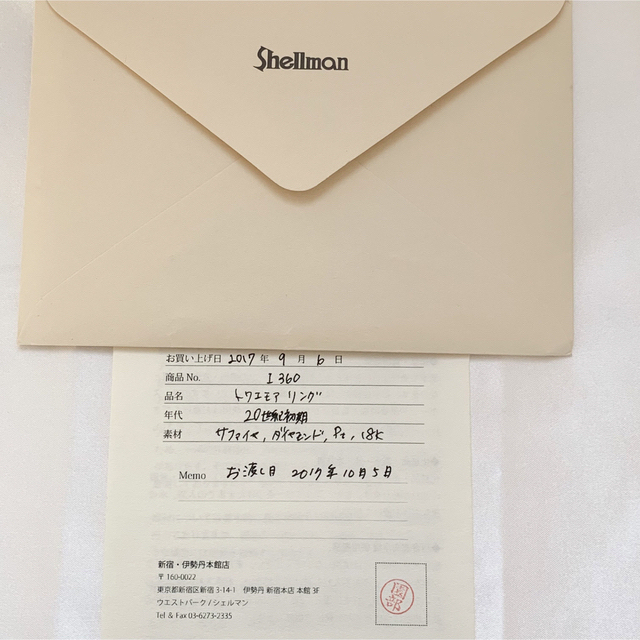 Shellman
お買い上げ日 2017年 9月 6日
商品No. I 360
品名 トワエモア リング
年代 20世紀初期
素材 サファイヤ, ダイヤモンド, Pt, 18K
Memo お渡し日 2017年10月5日
新宿・伊勢丹本館店
〒160-0022
東京都新宿区新宿3-14-1 伊勢丹 新宿本店 本館 3F
ウエストパーク/シェルマン
Tel & Fax 03-6273-2335